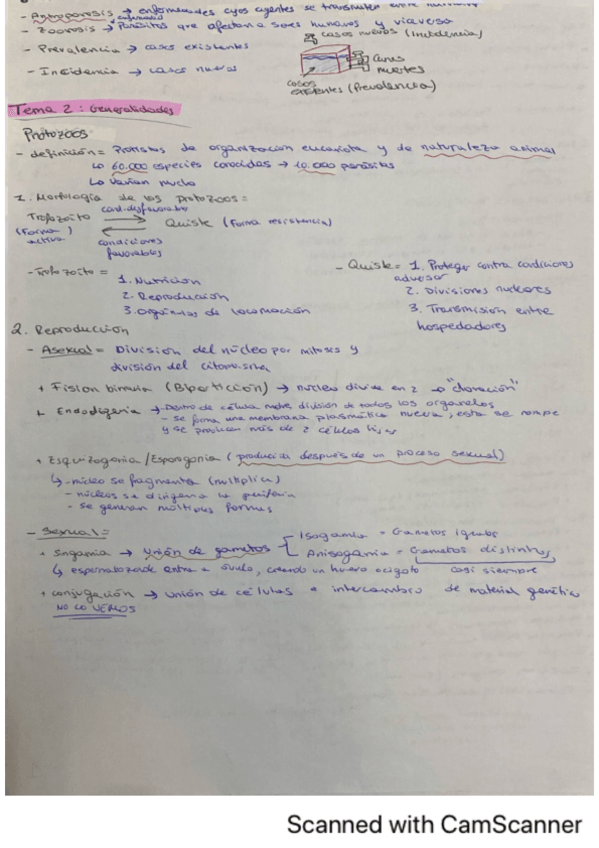 - Antroponosis → enfermedades cuyos agentes se transmiten entre humanos
- Zoonosis → Parásitos que afectan a seres humanos y viceversa
enfermedad
- Prevalencia → casos existentes
- Incidencia → casos nuevos
casos nuevos (Incidencia)
Curas
muertes
casos
existentes (Prevalencia)
Tema 2: Generalidades
Protozoos
- definición = Protistas de organización eucariota y de naturaleza animal
↳ 60.000 especies conocidas → 10.000 parásitas
↳ Varían mucho
1. Morfología de los protozoos =
cond. desfavorable
Trofozoito ⇄ Quiste (Forma resistencia)
(Forma activa)
condiciones
favorables
- Trofozoito =
1. Nutrición
2. Reproducción
3. Orgánulos de locomoción
- Quiste = 1. Proteger contra condiciones
adversas
2. Divisiones nucleares
3. Transmisión entre
hospedadores
2. Reproducción
- Asexual = División del núcleo por mitosis y
división del citoplasma
+ Fision binaria (Bipartición) → núcleo divide en 2 → "clonación"
+ Endodiogenia → Dentro de célula madre división de todos los organelos
- se forma una membrana plasmática nueva, esta se rompe
y se producen más de 2 células hijas
+ Esquizogonia / Esporogonia (producida después de un proceso sexual)
↳ - núcleo se fragmenta (multiplica)
- núcleos se dirigen a la periferia
- se generan múltiples formas
- Sexual =
+ Singamia → Unión de gametos
Isogamia = Gametos iguales
Anisogamia = Gametos distintos
↳ espermatozoide entra a óvulo, creando un huevo o cigoto
casi siempre
+ conjugación → unión de células e intercambio de material genético
NO LO VEMOS
Scanned with CamScanner